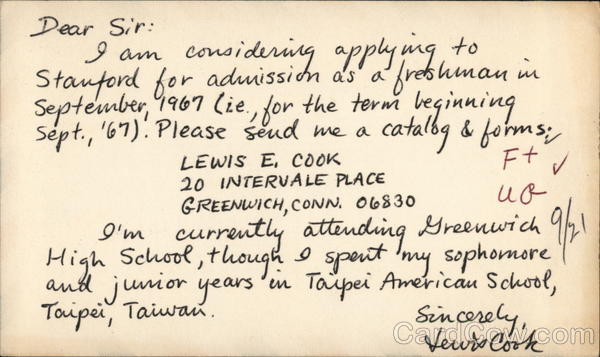 Dear Sir:
I am considering applying to
Stanford for admission as a freshman in
September, 1967 (i.e., for the term beginning
Sept., '67). Please send me a catalog & forms:
LEWIS E. COOK
20 INTERVALE PLACE
GREENWICH, CONN. 06830
F+
UG
9/21
I'm currently attending Greenwich
High School, though I spent my sophomore
and junior years in Taipei American School,
Taipei, Taiwan.
Sincerely,
Lewis Cook
CardCow.com